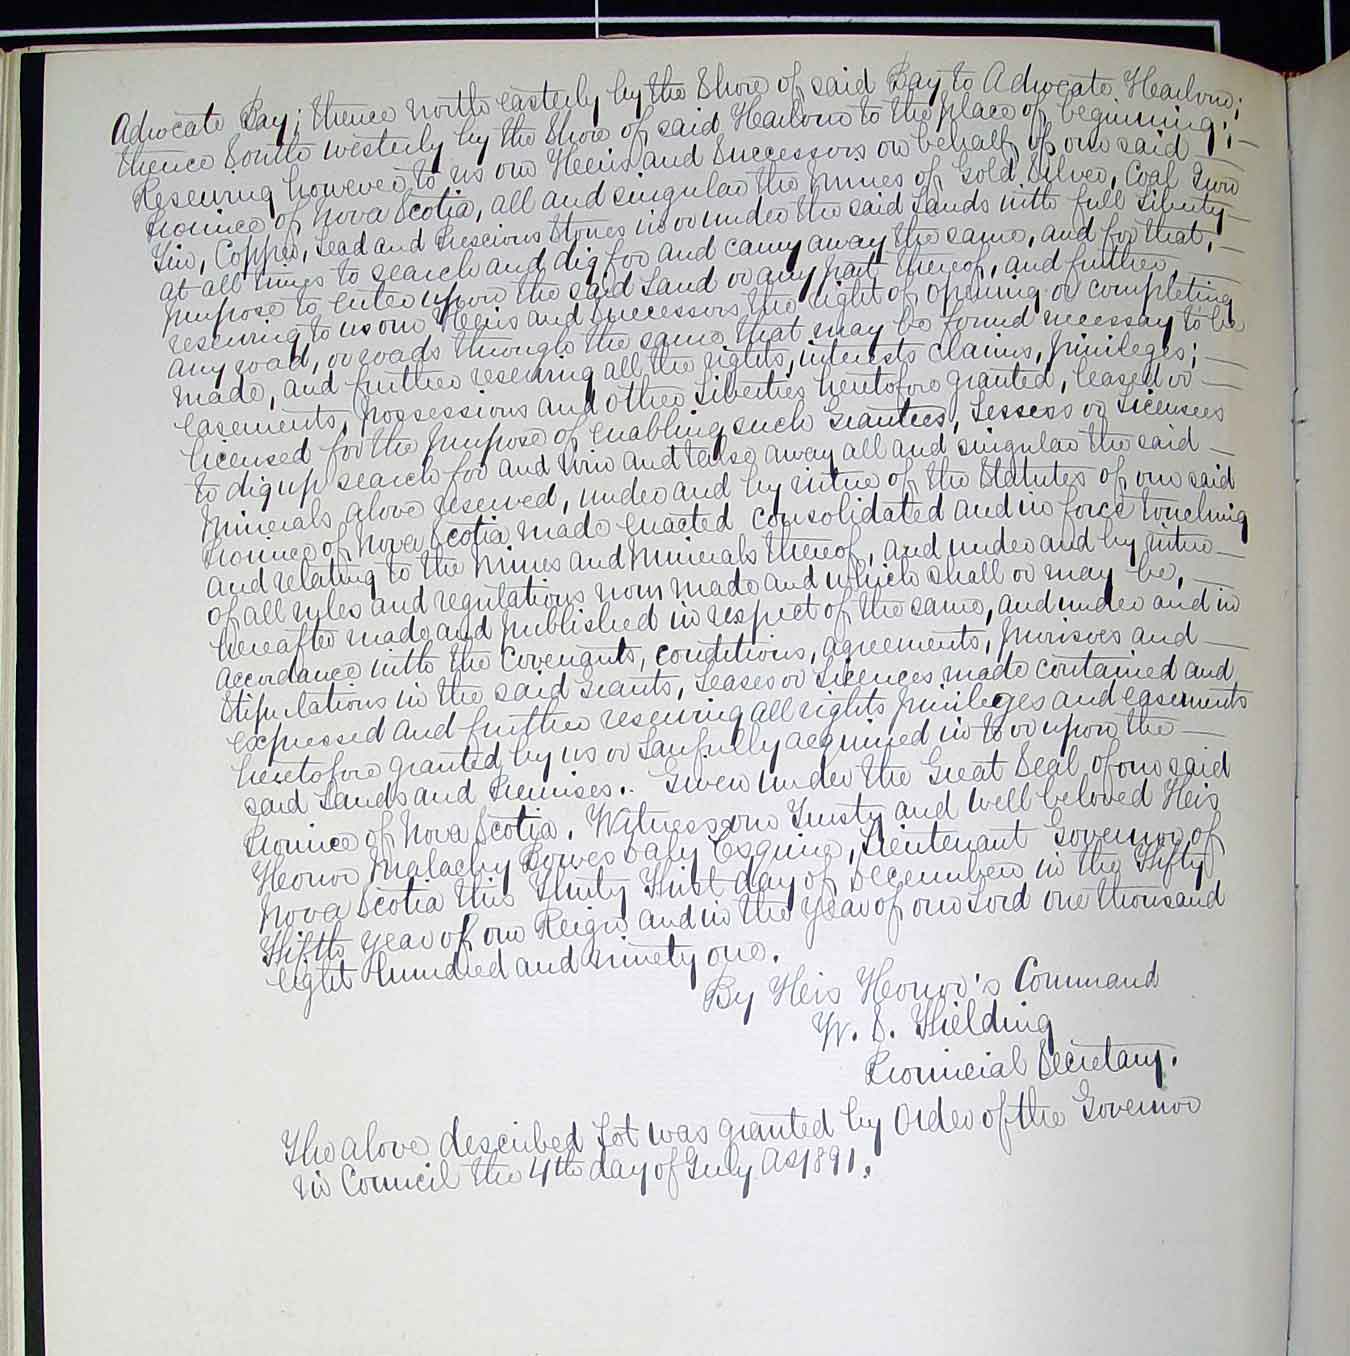 Advocate Bay; thence north easterly by the Shore of said Bay to Advocate Harbour;
thence South westerly by the Shore of said Harbour to the place of beginning;—
Reserving however to us our Heirs and Successors on behalf of our said
Province of Nova Scotia, all and singular the Mines of Gold Silver, Coal Iron
Tin, Copper, Lead and Prescious Stones in or under the said Lands with full Liberty—
at all times to search and dig for and carry away the same, and for that,—
purpose to enter upon the said Land or any part thereof, and further,—
reserving to us our Heirs and Successors the right of opening or completing
any road, or roads through the same that may be found necessay to be
made, and further reserving all the rights, interests claims, privileges;—
easements, possessions and other Liberties heretofore granted, leased or—
licensed for the purpose of enabling such Grantees, Lessess or Licensees
to dig up search for and win and take away all and singular the said—
Minerals above reserved, under and by virtue of the Statutes of our said
Province of Nova Scotia made enacted consolidated and in force touching
and relating to the Mines and Minerals thereof, and under and by virtue—
of all rules and regulations now made and which shall or may be,—
hereafter made and published in respect of the same, and under and in
accordance with the Covenants, conditions, agreements, provisoes and—
Stipulations in the said Grants, Leases or Licences made contained and
expressed and further reserving all rights privileges and easements
heretofore granted by us or Lawfully acquired in to or upon the—
said Lands and Premises.. Given under the Great Seal of our said
Province of Nova Scotia. Witness our Trusty and well beloved His
Honor Malachy Bowes Daly Esquire, Lieutenant Governor of
Nova Scotia this Thirty First day of December in the Fifty
Fifth year of our Reign and in the year of our Lord one thousand
eight Hundred and ninety one.
By His Honor's Command
W. S. Fielding
Provincial Secretary.
The above described Lot was granted by Order of the Governor
in Council the 4th day of July AD 1891.